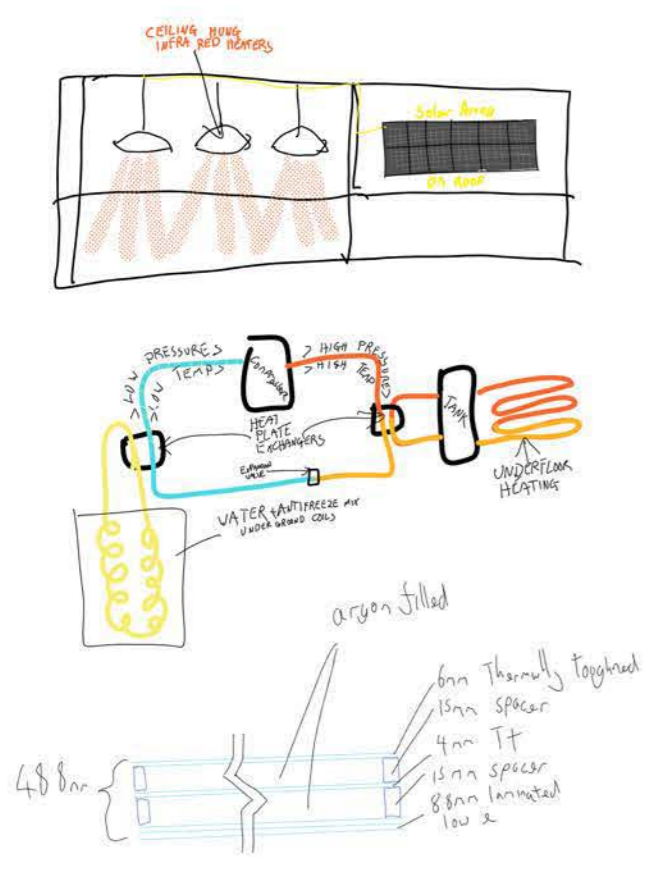 CEILING HUNG
INFRA RED HEATERS
Solar Array
ON ROOF
> LOW PRESSURES
> LOW TEMPS
COMPRESSOR
> HIGH PRESSURES
> HIGH TEMP
HEAT
PLATE
EXCHANGERS
TANK
EXPANSION
VALVE
UNDERFLOOR
HEATING
WATER + ANTIFREEZE MIX
UNDER GROUND COILS
argon filled
6mm Thermally toughned
15mm spacer
4mm Tt
15mm spacer
8.8mm laminated
low e
48.8mm